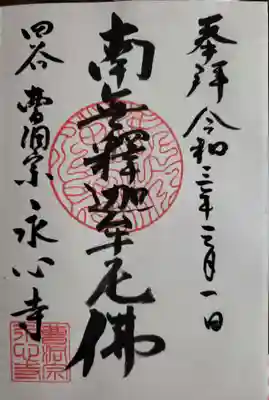 奉拜 令和三年三月一日
南無釋迦牟尼佛
四谷 曹洞宗 永心寺
曹洞宗
永心寺